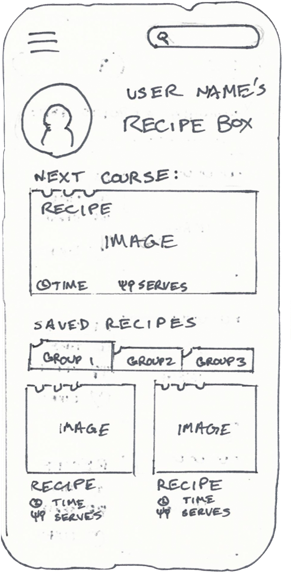 USER NAME'S
RECIPE BOX
NEXT COURSE:
RECIPE
IMAGE
TIME SERVES
SAVED RECIPES
GROUP 1 GROUP2 GROUP3
IMAGE IMAGE
RECIPE RECIPE
TIME TIME
SERVES SERVES